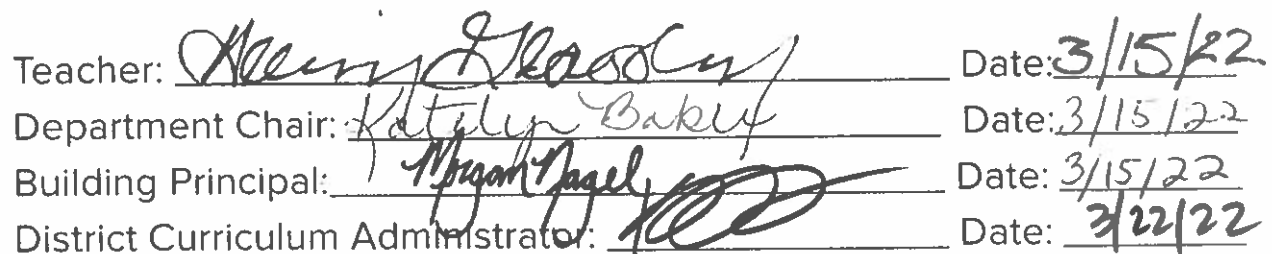 Teacher: Date: 3/15/22
Department Chair: Katelyn Baker Date: 3/15/22
Building Principal: Morgan Nagel Date: 3/15/22
District Curriculum Administrator: Date: 3/22/22